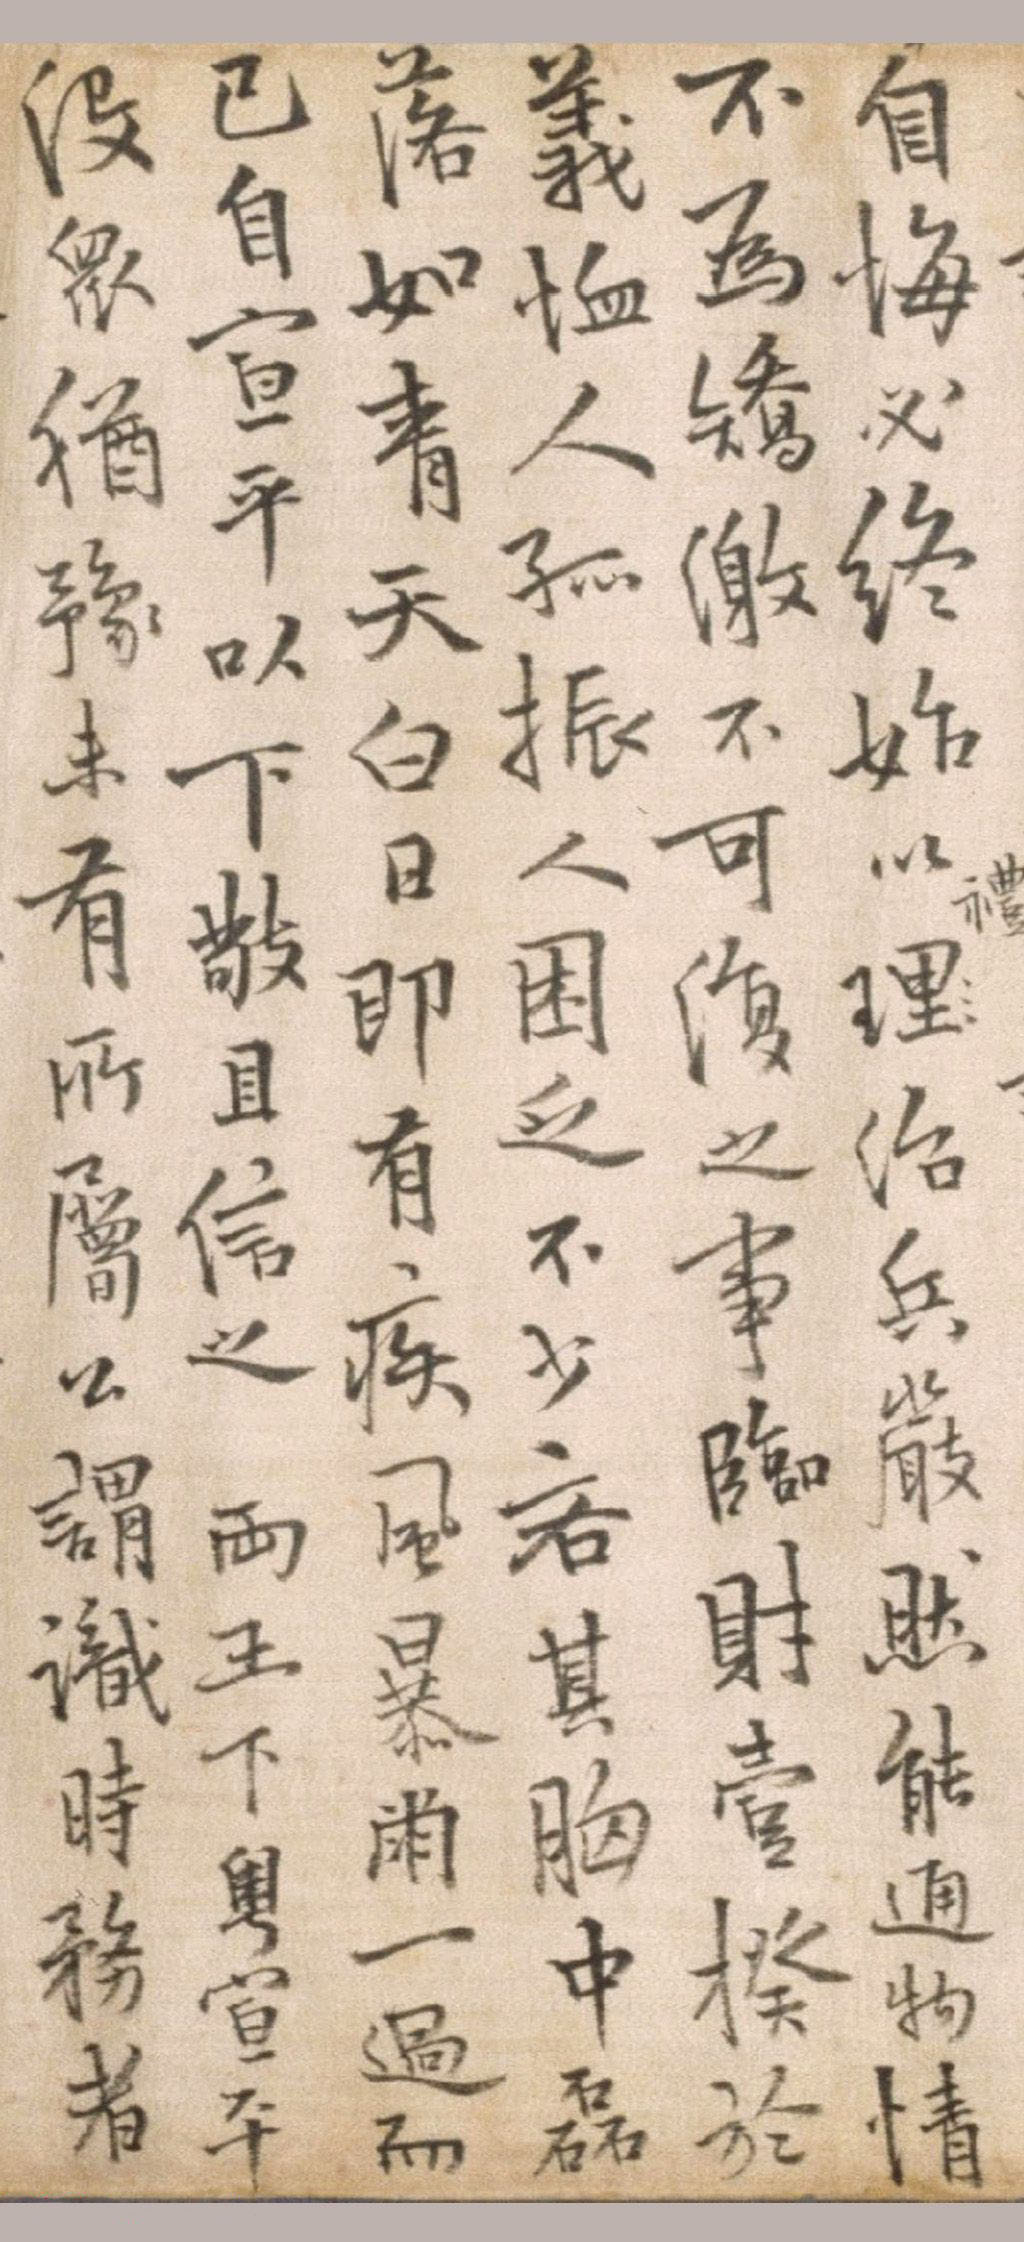 自悔必終始以理治兵嚴然能通物情
禮
不為矯激不可復之事臨財壹揆於
義恤人孤振人困乏不少吝其胸中磊
落如青天白日即有疾風暴雨一過而
已自宣平以下敬且信之 兩王下粵宣平
沒眾猶豫未有所屬公謂識時務者